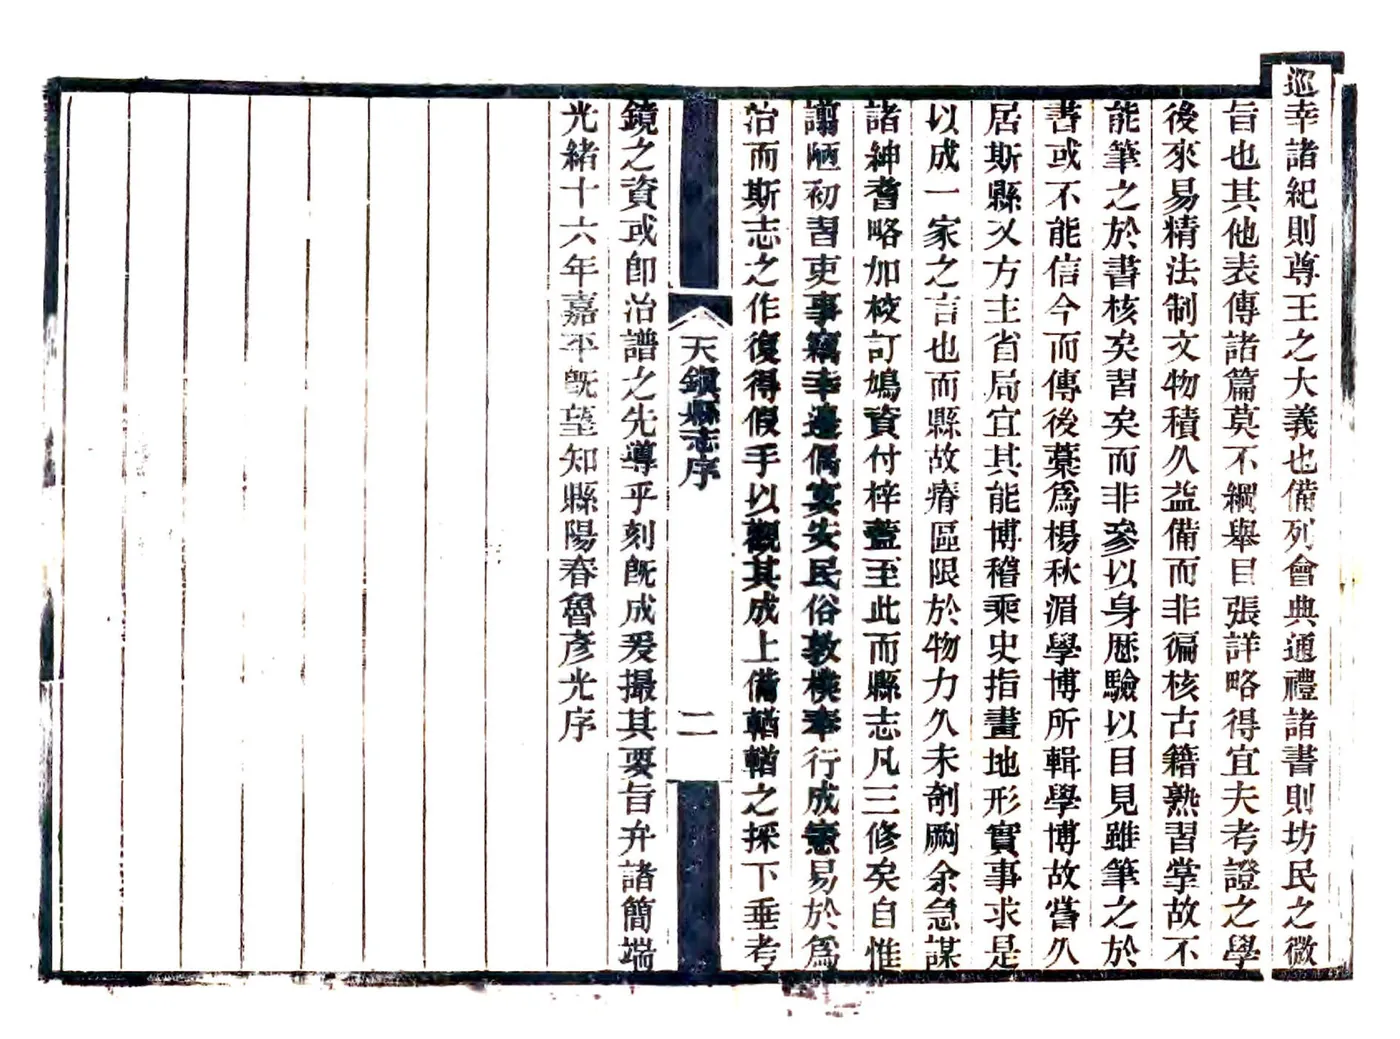 巡幸諸紀則尊王之大義也備列會典通禮諸書則坊民之微
旨也其他表傳諸篇莫不綱舉目張詳略得宜夫考證之學
後來易精法制文物積久益備而非徧核古籍熟習掌故不
能筆之於書核矣習矣而非參以身歷驗以目見雖筆之於
書或不能信今而傳後藁爲楊秋湄學博所輯學博故嘗久
居斯縣又方主省局宜其能博稽乘史指畫地形實事求是
以成一家之言也而縣故瘠區限於物力久未剞劂余急謀
諸紳耆略加校訂鳩資付梓蓋至此而縣志凡三修矣自惟
譾陋初習吏事竊幸邊偶宴安民俗敦樸奉行成憲易於爲
治而斯志之作復得假手以觀其成上備輶輶之採下垂考
天鎮縣志序
二
鏡之資或卽治譜之先導乎刻旣成爰撮其要旨弁諸簡端
光緒十六年嘉平旣望知縣陽春魯彥光序